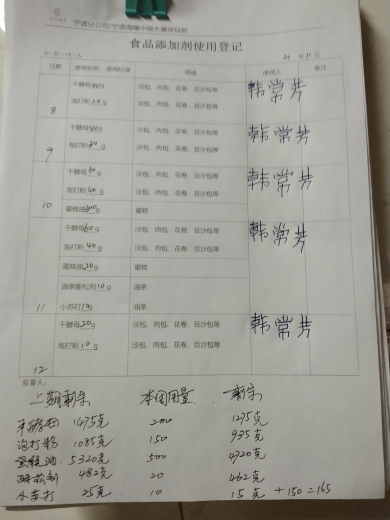 宁波分公司/宁波海曙中银大厦项目部
食品添加剂使用登记
21 年 月 日
日期 使用名称、使用标准 用途 使用人 备注
8 干酵母40g 淡包、肉包、花卷、豆沙包等 韩常芳
泡打粉20g 淡包、肉包、花卷、豆沙包等
9 干酵母40g 淡包、肉包、花卷、豆沙包等 韩常芳
泡打粉30g 淡包、肉包、花卷、豆沙包等
10 干酵母60g 淡包、肉包、花卷、豆沙包等 韩常芳
泡打粉40g 淡包、肉包、花卷、豆沙包等
蛋糕油300g 蛋糕
11 干酵母60g 淡包、肉包、花卷、豆沙包等 韩常芳
泡打粉40g 淡包、肉包、花卷、豆沙包等
蛋糕油20g 蛋糕
油条膨松剂10g 油条
小苏打10g 油条
12 干酵母20g 淡包、肉包、花卷、豆沙包等 韩常芳
泡打粉10g 淡包、肉包、花卷、豆沙包等
监督人:
上期剩余 本周用量 剩余
干酵母 1475克 200 1275克
泡打粉 1085克 150 935克
蛋糕油 5320克 500 4720克
482克 20 462克
小苏打 25克 10 15克 +150=165